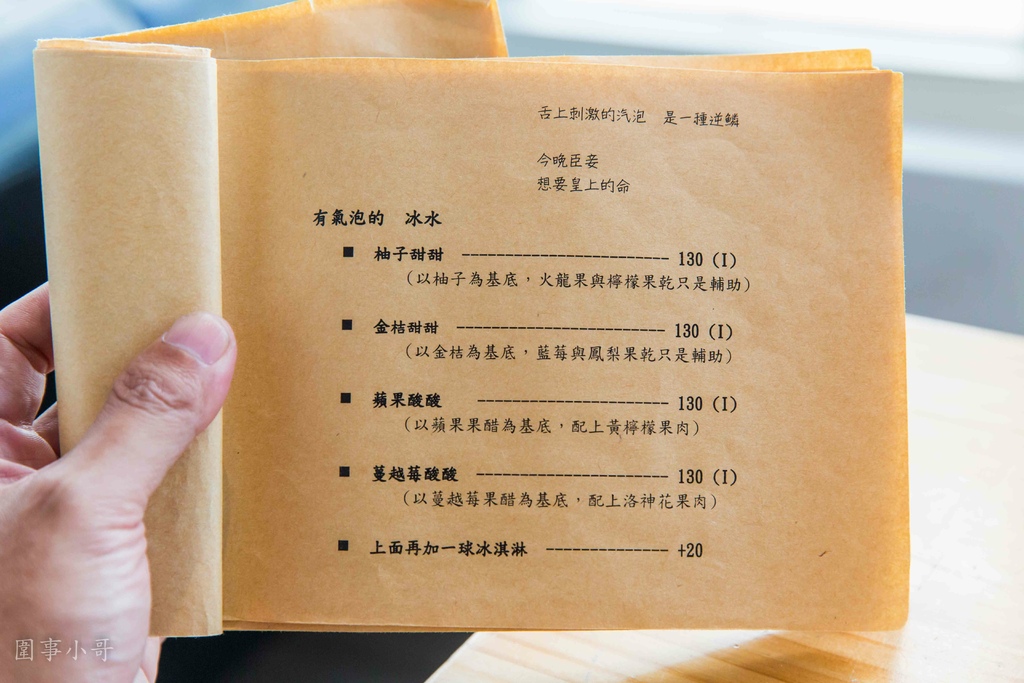 舌上刺激的汽泡　是一種逆鱗
今晚臣妾
想要皇上的命
有氣泡的　冰水
■ 柚子甜甜 ------------------------ 130 (I)
（以柚子為基底，火龍果與檸檬果乾只是輔助）
■ 金桔甜甜 ------------------------ 130 (I)
（以金桔為基底，藍莓與鳳梨果乾只是輔助）
■ 蘋果酸酸 ---------------------- 130 (I)
（以蘋果果醋為基底，配上黃檸檬果肉）
■ 蔓越莓酸酸 ---------------------- 130 (I)
（以蔓越莓果醋為基底，配上洛神花果肉）
■ 上面再加一球冰淇淋 -------------- +20
圍事小哥